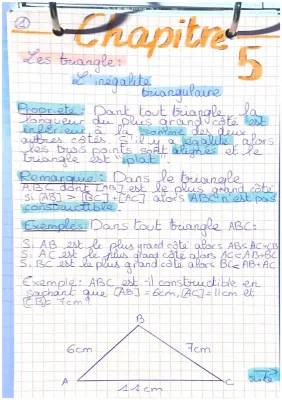 1
Chapitre 5
Les triangle:
L'inégalité
triangulaire
Propriété: Dant tout triangle, la
longueur du plus grand côté est
inférieur à la somme des deux
autres côtés. S'il y a égalité alors
les trois points sont alignés et le
triangle est "plat"
Remarque: Dans le triangle
ABC dont [AB] est le plus grand côté
si [AB] > [BC] + [AC] alors ABC n'est pas
constructible.
Exemples: Dans tout triangle ABC:
Si AB est le plus grand côté alors AB≤AC+CB
Si AC est le plus grand côté alors AC≤AB+BC
Si BC est le plus grand côté alors BC≤AB+AC
Exemple: ABC est-il constructible en
sachant que [AB]=6cm, [AC]=11cm et
[CB]=7cm?
B
6cm 7cm
A C
11cm
suite